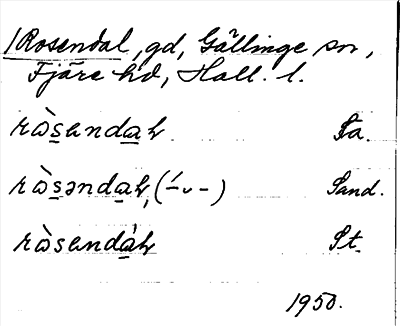 Rosendal, gd, Gällinge sn,
Fjäre hd, Hall. l.
ròsendaɫ Sa.
ròsəndaɫ, (–́ ᴗ –) Sand.
ròsendáɫ St.
1950.